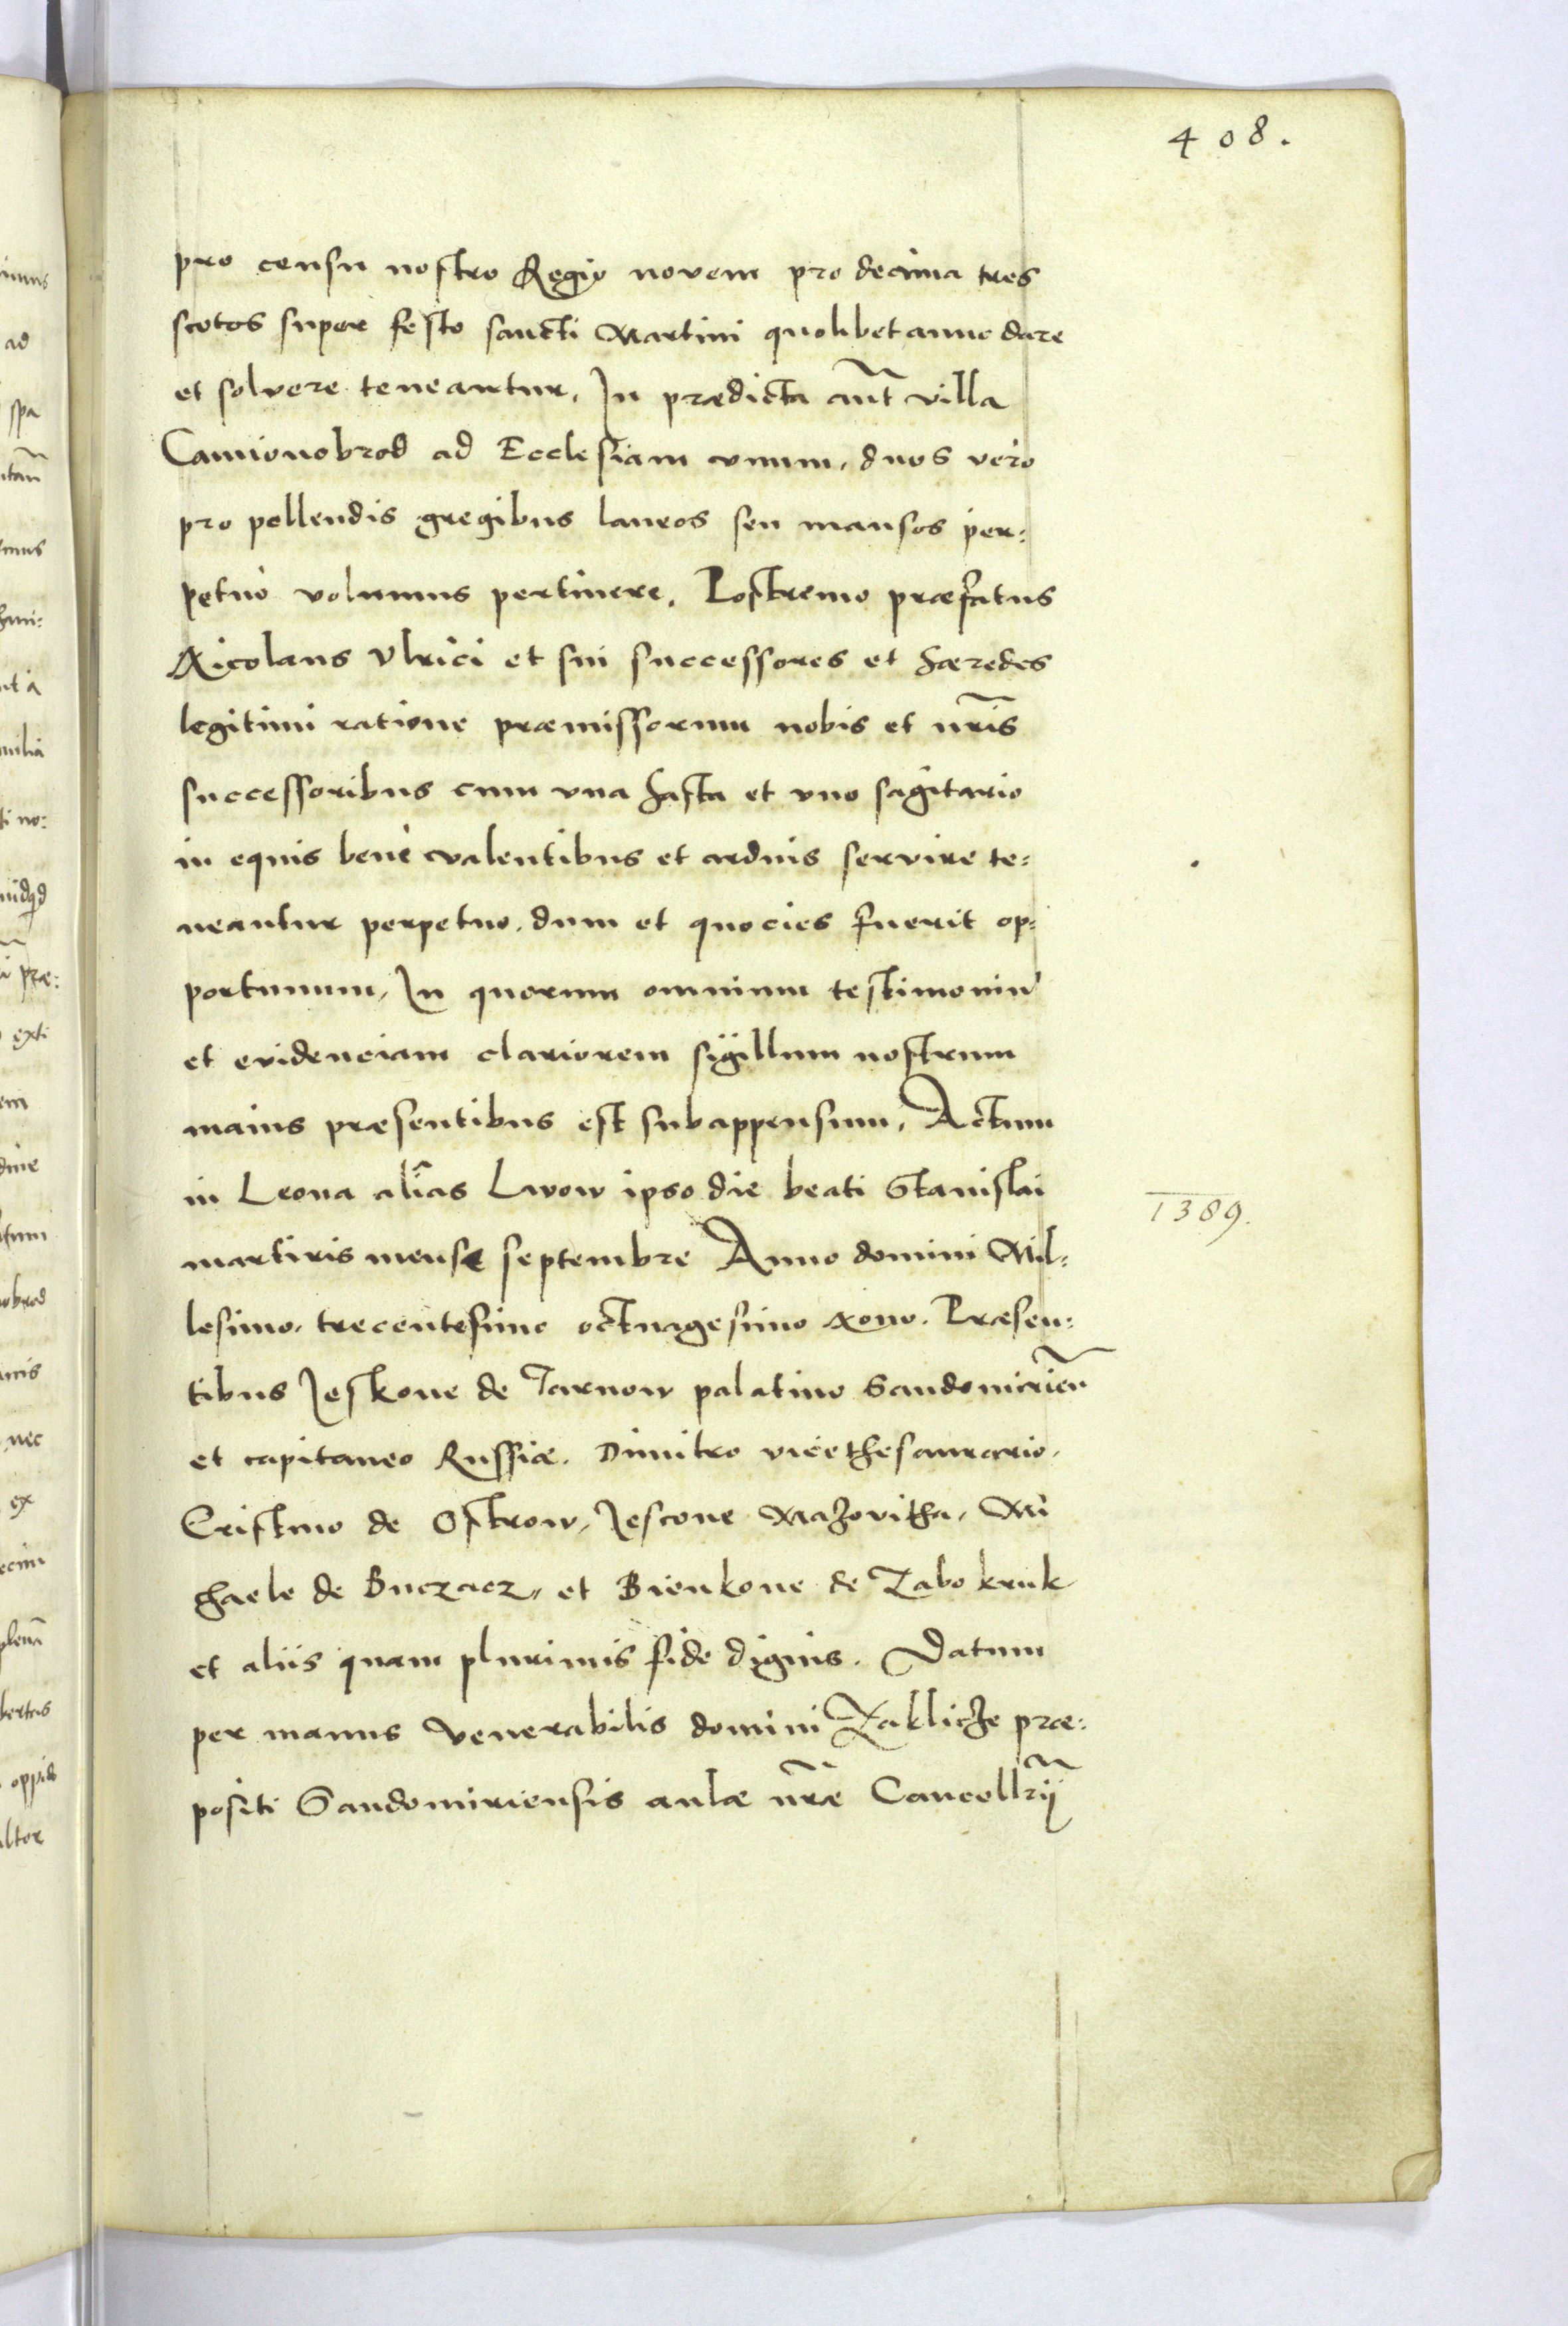 408.
pro censu nostro Regio novem pro decima tres
scotos super festo sancti Martini quolibet anno dare
et solvere teneantur, In prædicta aut̃ villa
Camionobrod ad Ecclesiam unum, duos verò
pro pellendis gregibus laneos seu mansos per:
petuò volumus pertinere, Postremo præfatus
Nicolaus Ulrici et sui successores et hæredes
legitimi ratione præmissorum nobis et nr̃is
successoribus cum una hasta et uno sagitario
in equis benè valentibus et arduis servire te:
neantur perpetuo, dum et quocies fuerit op:
portunum, In quorum omnium testimoniũ
et evidenciam clariorem sigillum nostrum
maius præsentibus est subappensum, Actum
in Leona aliâs Lwow ipso die beati Stanislai
1389.
martiris mense septembre Anno domini Mil:
lesimo, trecentesimo octuagesimo Nono. Præsen:
tibus Jeskone de Tarnow palatino Sandomirieñ
et capitaneo Russiæ. Dimitro vicethesaurario,
Cristino de Ostrow, Jescone Mazovitha, Mi
chaele de Buczacz, et Bienkone de Zabokruk
et aliis quam plurimis fide dignis. Datum
per manus Venerabilis domini Zakliche præ:
positi Sandomiriensis aulæ nr̃æ Cancellr̃ij